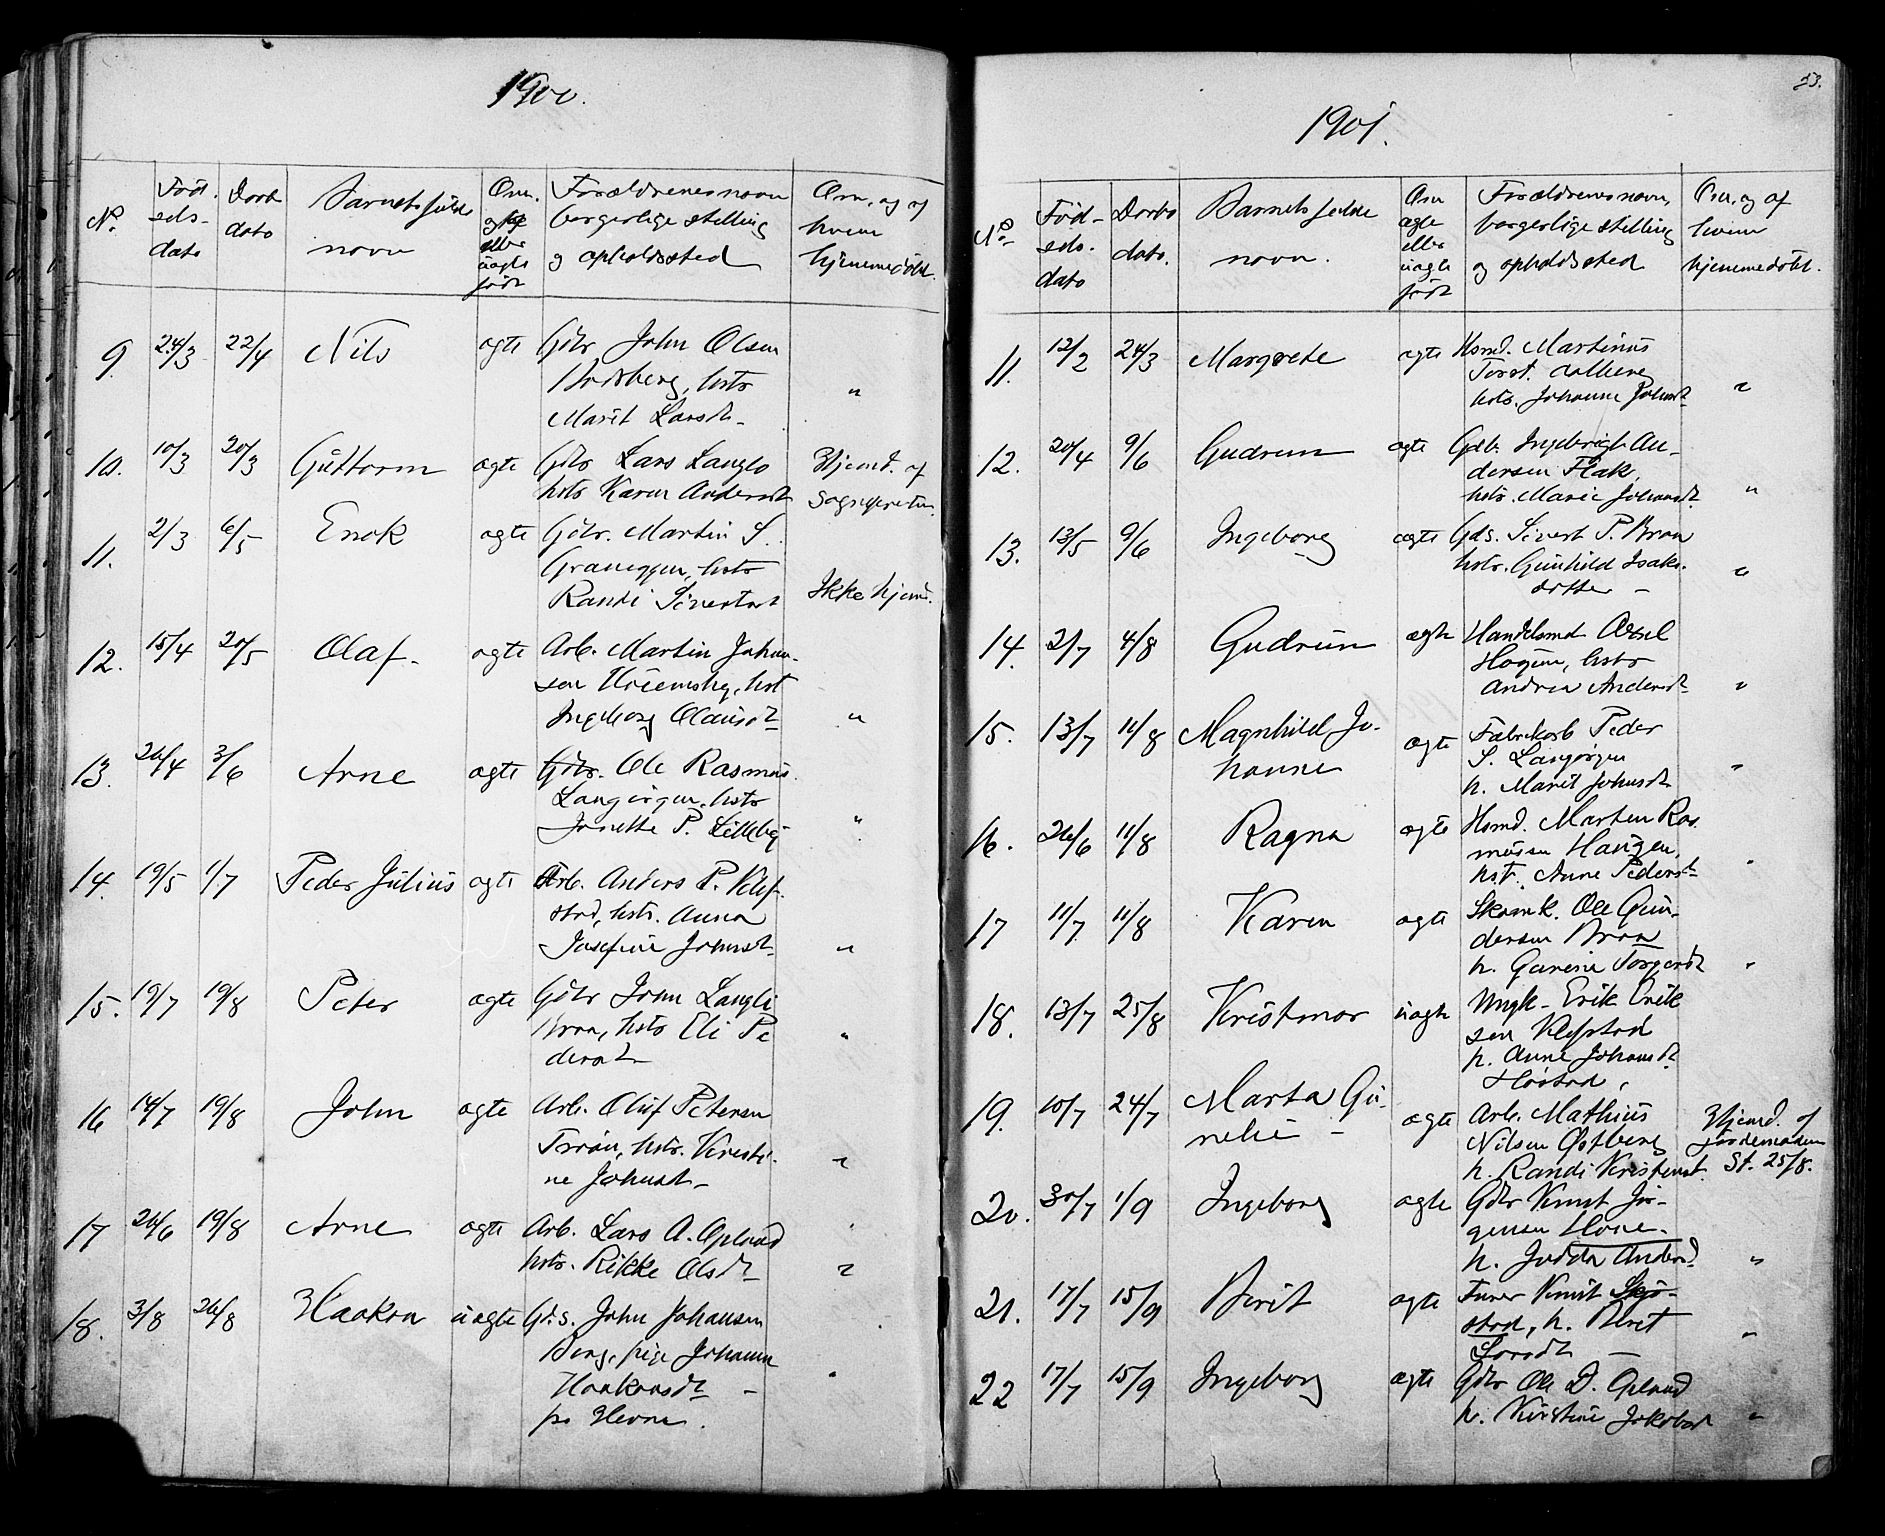 1900.
No.
Föd-
sels-
dato
Daabs
dato
Barnets fulde
navn
Om
ægte
eller
uægte
født
Forældrenes navn
borgerlige stilling
og opholdssted
Om, og af
hvem
hjemmedöbt.
9. 24/3 22/4 Nils ægte Gdbr John Olsen
hstr
Marit Larsdt. "
10. 10/3 20/3 Guttorm ægte Gdbr Lars Langlo
hstr Karen Andersdt
Hjemd. af
sognepresten
11. 2/3 6/5 Enok ægte Gdbr. Martin S.
hstr
Randi Sivertsdt Ikke hjemd.
12. 15/4 20/5 Olaf. ægte Arb. Martin Johan-
sen hst
Ingeborg Olausdt "
13. 26/4 3/6 Arne ægte Gdbr. Ole Rasmus.
Langörgen, hstr
Janette P. Lilleby "
14. 19/5 1/7 Peder Julius ægte Arb. Anders P. Klef-
stad, hstr. Anna
Josefine Johnsdt. "
15. 19/7 19/8 Peter ægte Gdbr John Langli
Braa, hstr Eli Pe
dersdt "
16 14/7 19/8 John ægte Arb. Oluf Petersen
hstr. Kristi-
ne Johnsdt. "
17 26/6 19/8 Arne ægte Arb. Lars A. Opland
hstr. Rikke Olsdt "
18. 3/8 26/8 Haakon uægte Gds. John Johansen
Berg, pige Johanna
Haakonsdt
"
1901.
53.
No.
Föd-
sels-
dato
Daabs
dato.
Barnets fulde
navn.
Om
ægte
eller
uægte
født
Forældrenes navn,
borgerlige stilling
og opholdssted
Om, og af
hvem
hjemmedöbt.
11. 12/2 24/3 Margrete ægte Hsmd. Martinus
Torst.
hstr. Johanna Johnsdt "
12. 20/4 9/6 Gudrun ægte Gdbr. Ingebrigt An-
dersen Flak,
hstr. Marie Johansdt. "
13. 13/5 9/6 Ingeborg ægte Gds. Sivert P. Braa
hstr. Gunhild Isaks-
dotter "
14. 2/7 4/8 Gudrun ægte Handelsmd Axel
Hagen, hstr
Andrea Andersdt "
15. 13/7 11/8 Magnhild Jo-
hanne ægte Fabrikarb Peder
S. Langörgen
h. Marit Johnsdt "
16. 26/6 11/8 Ragna ægte Hsmd. Morten Ras
musen Haugen,
hst. Anne Pedersdt "
17 11/7 11/8 Karen ægte Skomk. Ole Gun-
dersen Braa
h. Gurine Torgersdt "
18. 13/7 25/8 Kristmar uægte Ungk. Erik Erik
sen Klefstad
p. Anne Johansdt
Höstad,
19. 10/7 24/7 Marta Gu-
nelie ægte Arb. Mathius
Nilsen Östberg
h. Randi Kristensdt.
Hjemd. af
jordemoderen
St. 25/8.
20. 30/7 1/9 Ingeborg ægte Gdbr Knut Jör-
gensen Hove
h. Andersdt "
21. 17/7 15/9 Berit ægte Furer Knut Skjö-
stad, h. Beret
Larsdt "
22 17/7 15/9 Ingeborg ægte Gdbr Ole D. Opland
h. Kirstine Jakobsdt "